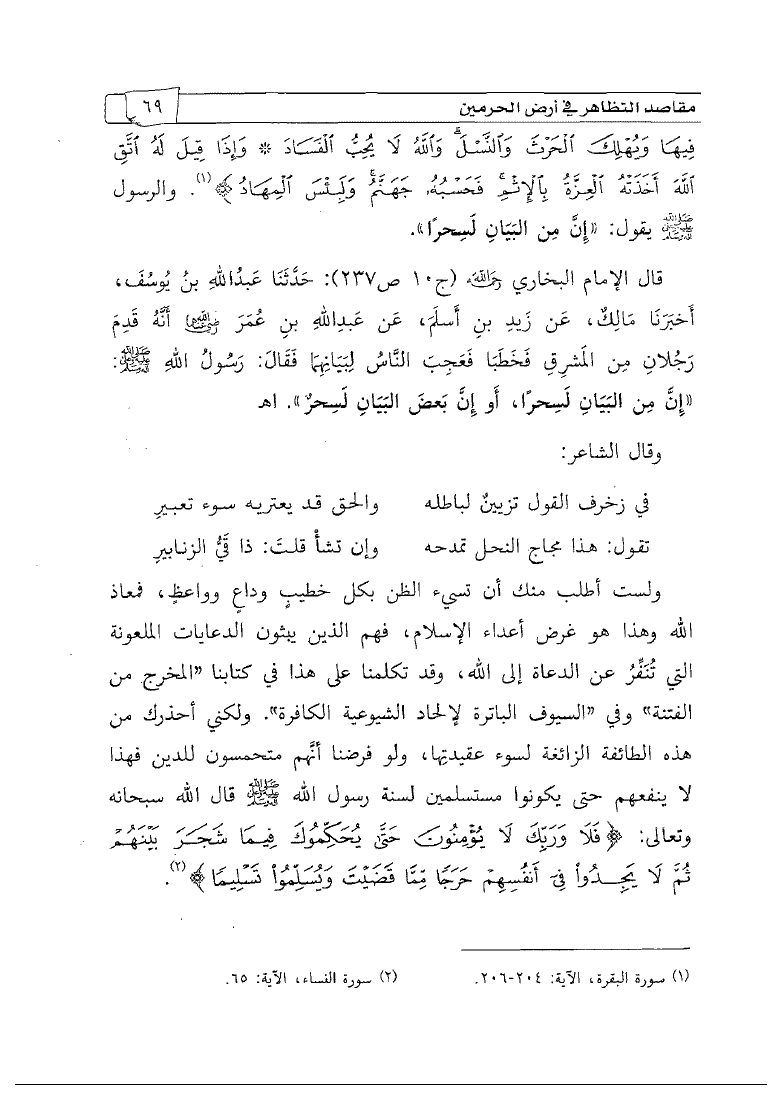 مقاصد التظاهر في أرض الحرمين ٦٩
فِيهَا وَيُهْلِكَ الْحَرْثَ وَالنَّسْلَ ۗ وَاللَّهُ لَا يُحِبُّ الْفَسَادَ * وَإِذَا قِيلَ لَهُ اتَّقِ
اللَّهَ أَخَذَتْهُ الْعِزَّةُ بِالْإِثْمِ ۚ فَحَسْبُهُ جَهَنَّمُ ۚ وَلَبِئْسَ الْمِهَادُ ﴾(١). والرسول
ﷺ يقول: «إِنَّ مِن البَيَانِ لَسِحرًا».
قال الإمام البخاري رحمه الله (ج١٠ ص٢٣٧): حَدَّثَنَا عَبدُاللهِ بنُ يُوسُفَ،
أَخبَرَنَا مَالِكٌ، عَن زَيدِ بنِ أَسلَمَ، عَن عَبدِاللهِ بنِ عُمَرَ رضي الله عنهما أَنَّهُ قَدِمَ
رَجُلانِ مِن المَشرِقِ فَخَطَبَا فَعَجِبَ النَّاسُ لِبَيَانِهِمَا فَقَالَ: رَسُولُ اللهِ ﷺ:
«إِنَّ مِن البَيَانِ لَسِحرًا، أَو إِنَّ بَعضَ البَيَانِ لَسِحرٌ». اهـ
وقال الشاعر:
في زخرف القول تزيينٌ لباطله والحق قد يعتريه سوء تعبيرِ
تقول: هذا مجاج النحل تمدحه وإن تشأْ قلتَ: ذا قَيُّ الزنابيرِ
ولست أطلب منك أن تسيء الظن بكل خطيبٍ وداعٍ وواعظٍ، فمعاذ
الله وهذا هو غرض أعداء الإسلام، فهم الذين يبثون الدعايات الملعونة
التي تُنَفِّرُ عن الدعاة إلى الله، وقد تكلمنا على هذا في كتابنا «المخرج من
الفتنة» وفي «السيوف الباترة لإلحاد الشيوعية الكافرة». ولكني أحذرك من
هذه الطائفة الزائغة لسوء عقيدتها، ولو فرضنا أنَّهم متحمسون للدين فهذا
لا ينفعهم حتى يكونوا مستسلمين لسنة رسول الله ﷺ قال الله سبحانه
وتعالى: ﴿ فَلَا وَرَبِّكَ لَا يُؤْمِنُونَ حَتَّىٰ يُحَكِّمُوكَ فِيمَا شَجَرَ بَيْنَهُمْ
ثُمَّ لَا يَجِدُوا فِي أَنْفُسِهِمْ حَرَجًا مِمَّا قَضَيْتَ وَيُسَلِّمُوا تَسْلِيمًا ﴾(٢).
(١) سورة البقرة، الآية: ٢٠٤-٢٠٦. (٢) سورة النساء، الآية: ٦٥.